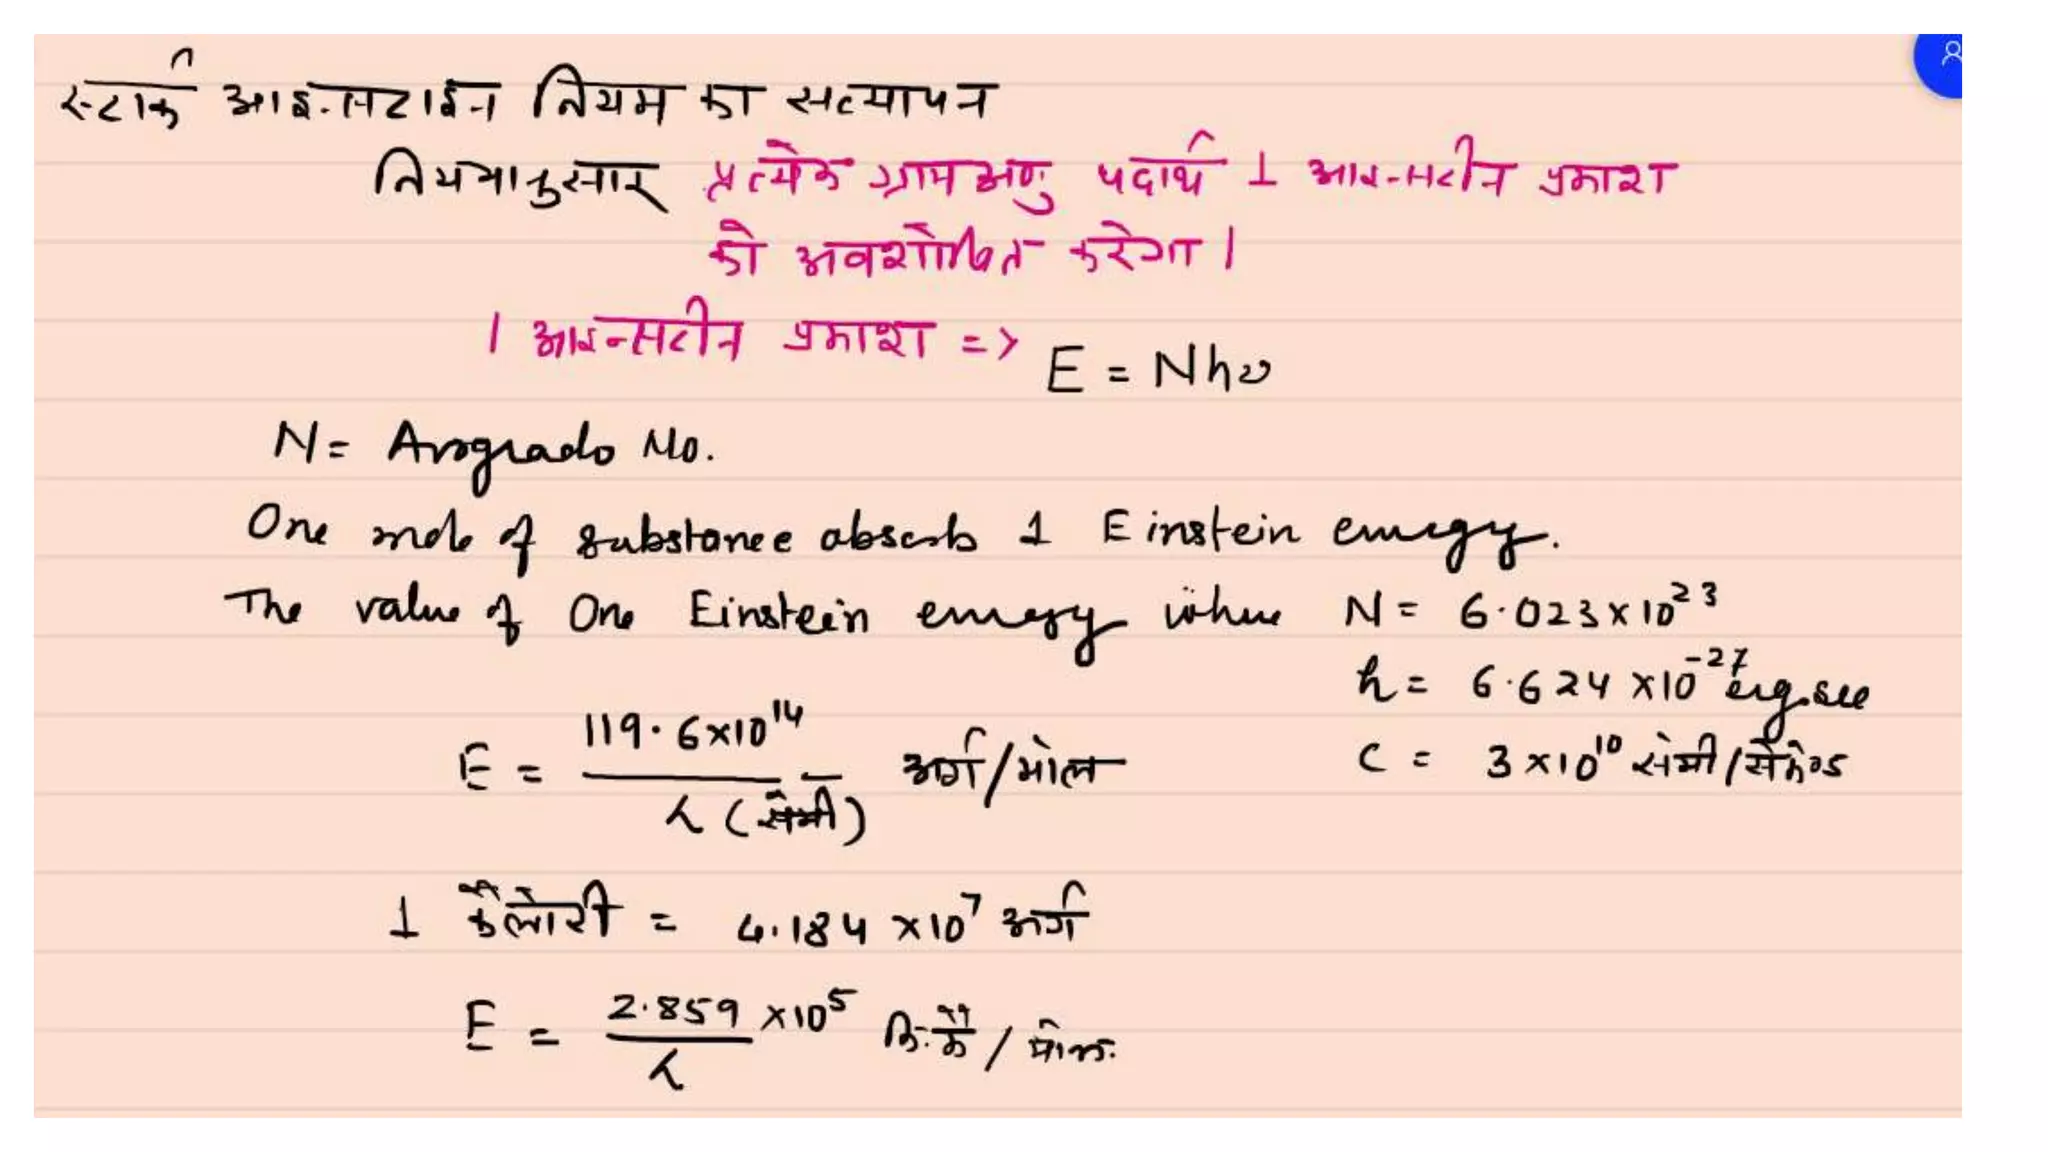 स्टार्क आइन्सटाईन नियम का सत्यापन
नियमानुसार प्रत्येक ग्रामअणु पदार्थ 1 आइन्सटीन प्रकाश
को अवशोषित करेगा ।
1 आइन्सटीन प्रकाश => E = Nhν
N = Avogrado No.
One mole of substance absorb 1 Einstein energy.
The value of One Einstein energy where N = 6.023×10²³
h = 6.624 ×10⁻²⁷ erg.sec
E = 119.6×10¹⁴ / λ (सेमी) अर्ग/मोल C = 3×10¹⁰ सेमी/सेकेण्ड
1 कैलोरी = 4.184 ×10⁷ अर्ग
E = 2.859 ×10⁵ / λ कि.कै / मोल.